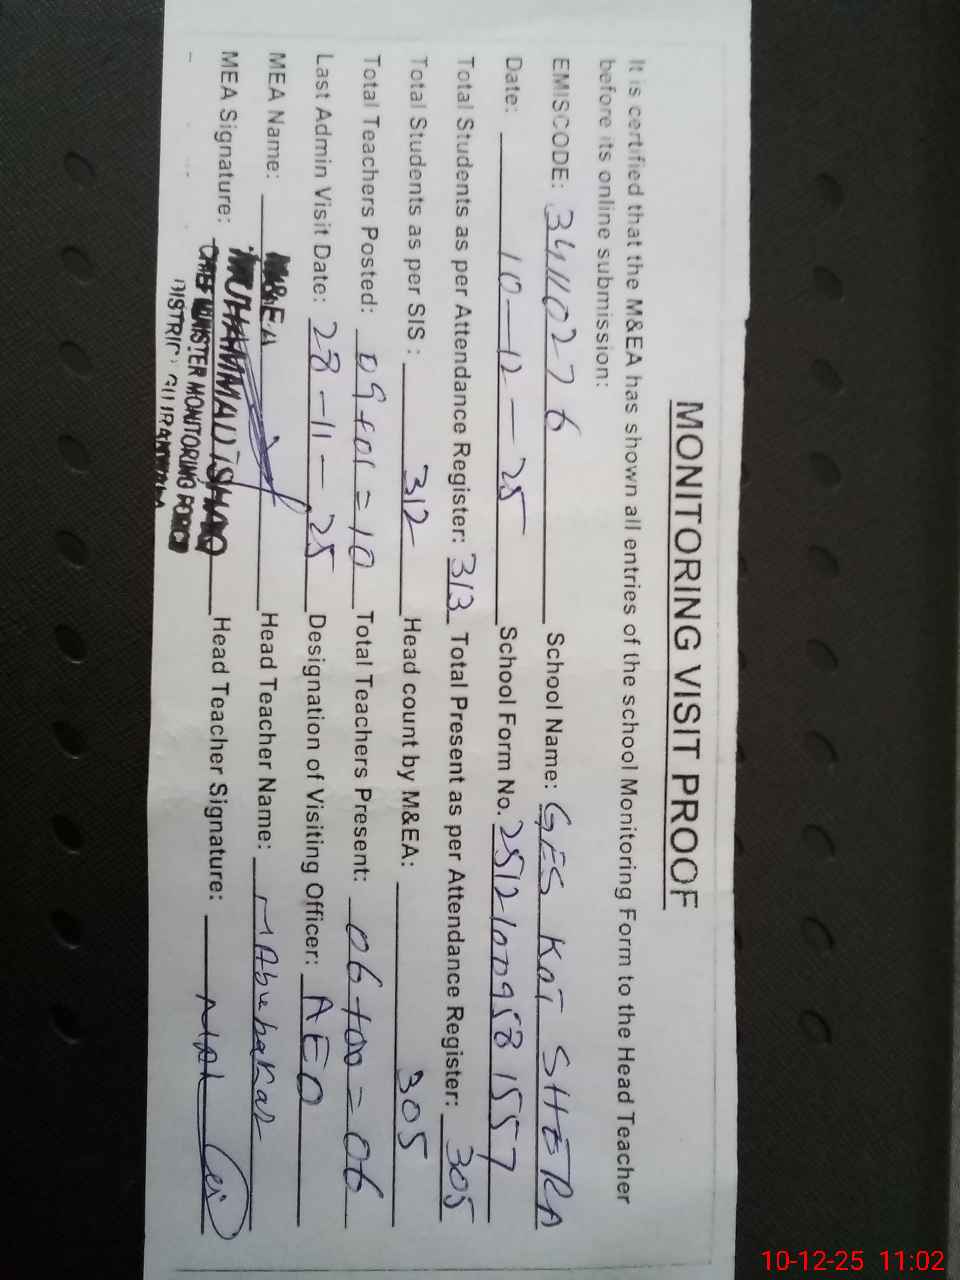 MONITORING VISIT PROOF
It is certified that the M&EA has shown all entries of the school Monitoring Form to the Head Teacher
before its online submission:
EMISCODE: 34110276 School Name: GES KOT SHERA
Date: 10-12-25 School Form No. 2512100958 1557
Total Students as per Attendance Register: 313 Total Present as per Attendance Register: 305
Total Students as per SIS: 312 Head count by M&EA: 305
Total Teachers Posted: 09+01=10 Total Teachers Present: 06+00=06
Last Admin Visit Date: 28-11-25 Designation of Visiting Officer: AEO
MEA Name: M&EA Head Teacher Name: M Abubakar
MEA Signature: MUHAMMAD ISHAQ Head Teacher Signature:
CHIEF MINISTER MONITORING FORCE
DISTRICT GUJRANWALA
10-12-25 11:02